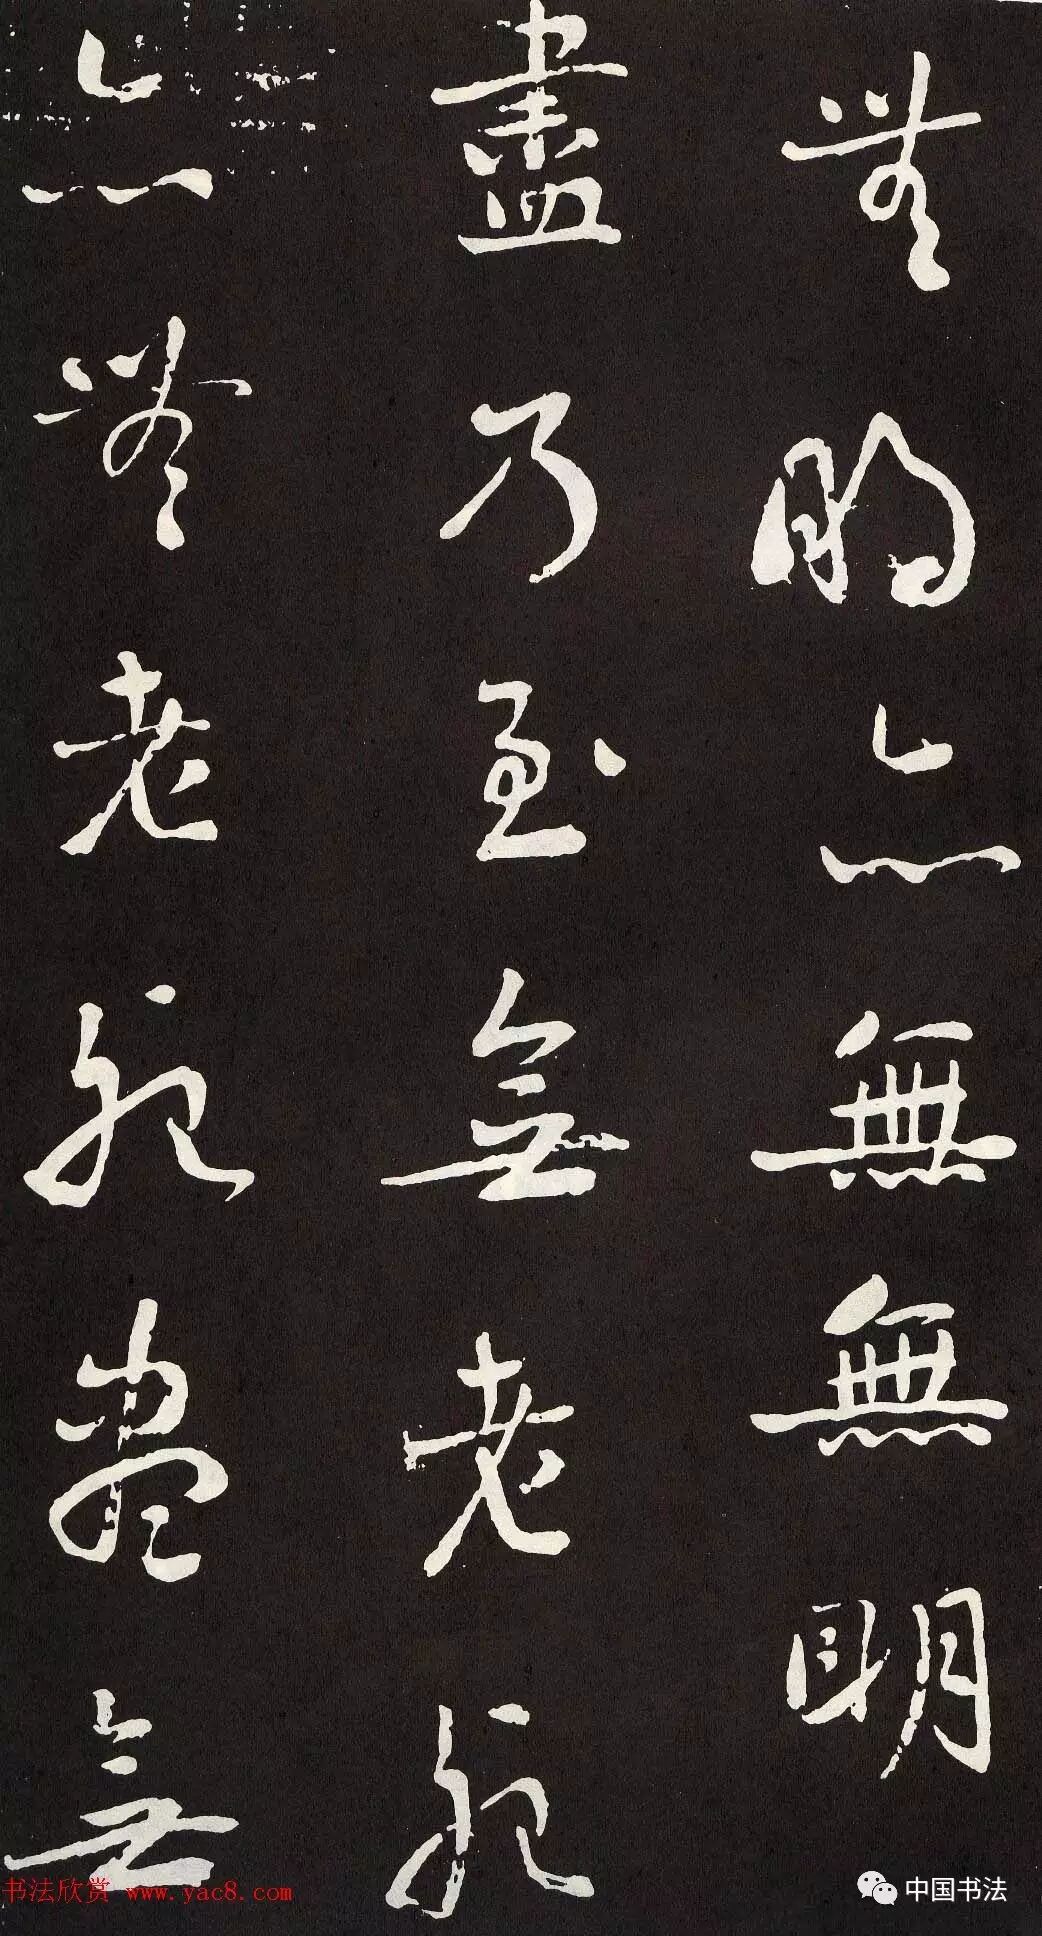 無明亦無無明
盡乃至無老死
亦無老死盡無
书法欣赏 www.yac8.com
中国书法